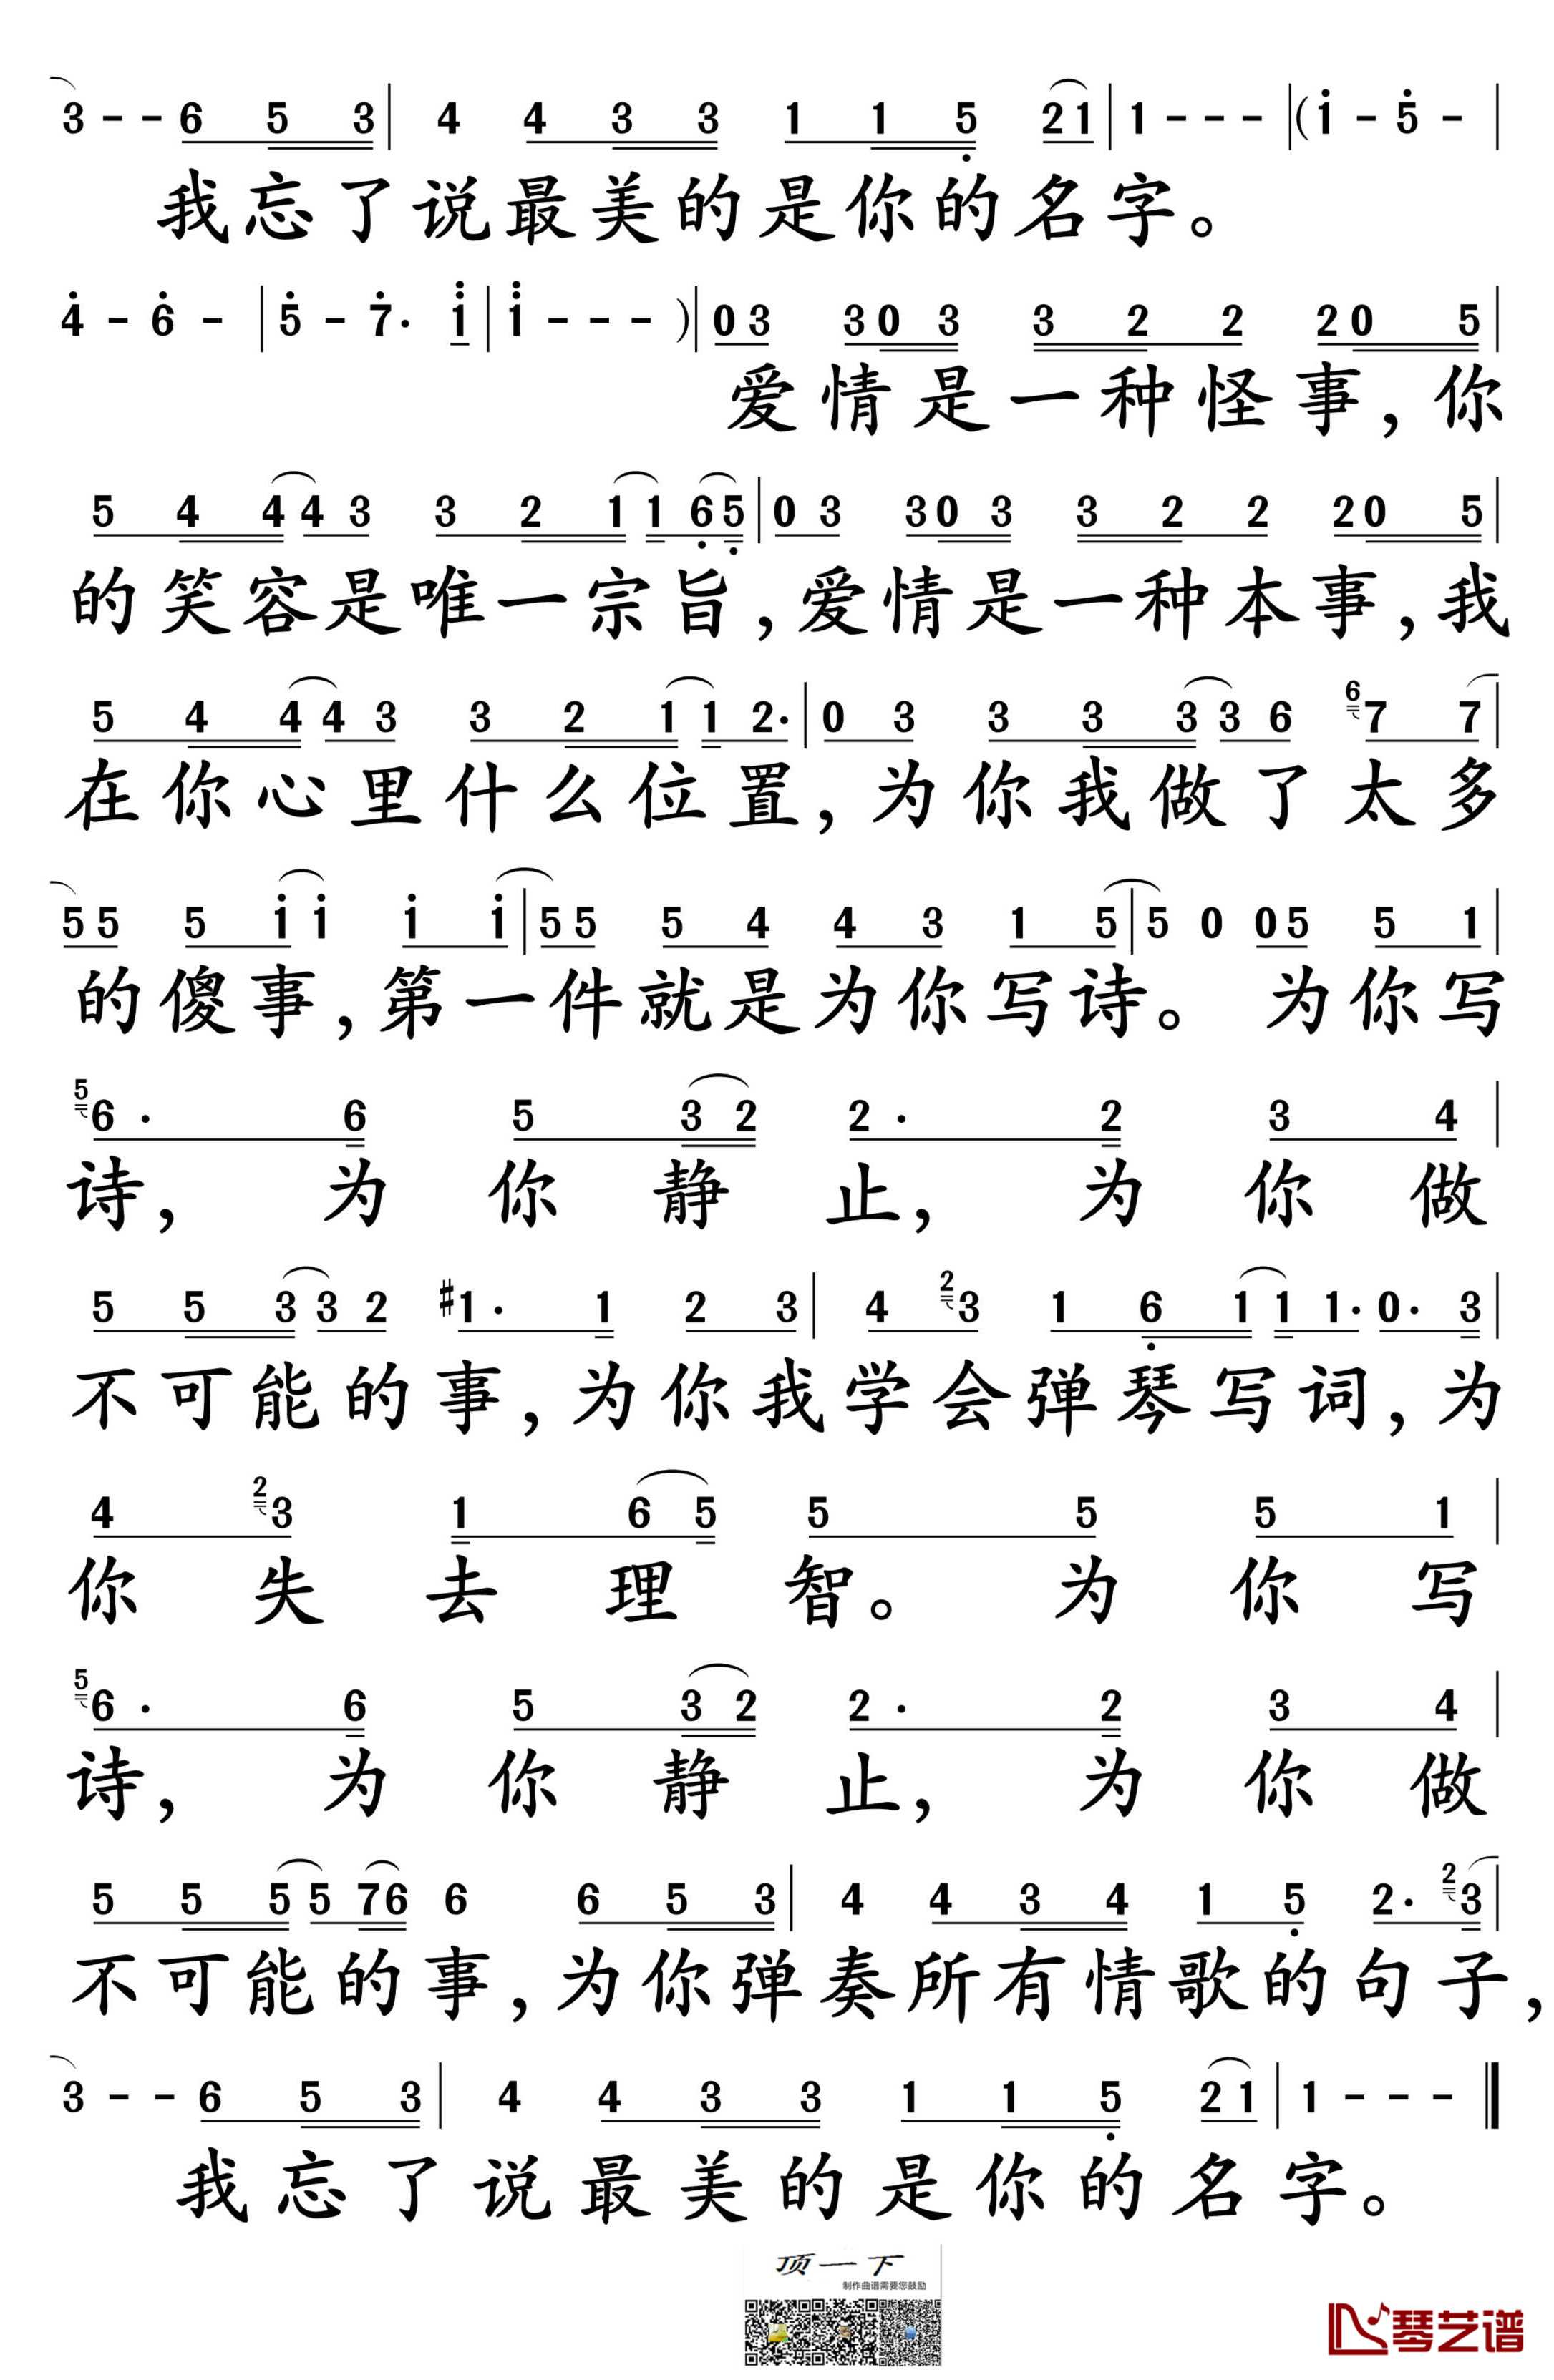 3 - - 6 5 3 | 4 4 3 3 1 1 5 2 1 | 1 - - - | ( 1 - 5 - |
我忘了说最美的是你的名字。
4 - 6 - | 5 - 7 · 1 | 1 - - - ) | 0 3 3 0 3 3 2 2 2 0 5 |
爱情是一种怪事,你
5 4 4 4 3 3 2 1 1 6 5 | 0 3 3 0 3 3 2 2 2 0 5 |
的笑容是唯一宗旨,爱情是一种本事,我
5 4 4 4 3 3 2 1 1 2 · | 0 3 3 3 3 3 6 6 7 7 |
在你心里什么位置,为你我做了太多
5 5 5 1 1 1 1 | 5 5 5 4 4 3 1 5 | 5 0 0 5 5 1 |
的傻事,第一件就是为你写诗。为你写
5 6 · 6 5 3 2 2 · 2 3 4 |
诗,为你静止,为你做
5 5 3 3 2 #1 · 1 2 3 | 4 2 3 1 6 1 1 1 · 0 · 3 |
不可能的事,为你我学会弹琴写词,为
4 2 3 1 6 5 5 5 5 1 |
你失去理智。为你写
5 6 · 6 5 3 2 2 · 2 3 4 |
诗,为你静止,为你做
5 5 5 5 7 6 6 6 5 3 | 4 4 3 4 1 5 2 · 2 3 |
不可能的事,为你弹奏所有情歌的句子,
3 - - 6 5 3 | 4 4 3 3 1 1 5 2 1 | 1 - - - ‖
我忘了说最美的是你的名字。
顶一下
制作曲谱需要您鼓励
琴艺谱